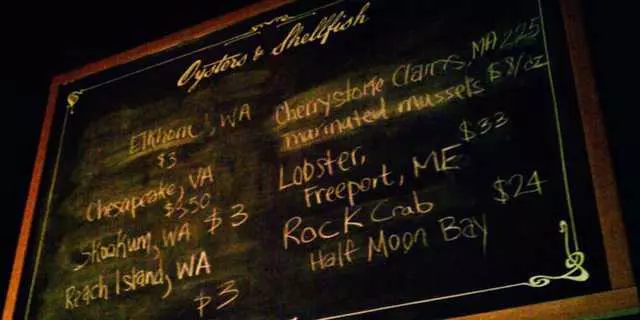 Oysters & Shellfish
Elkhorn, WA
$3
Chesapeake, VA
$3.50
Skookum, WA $3
Reach Island, WA
$3
Cherrystone Clams, MA 2.25
marinated mussels $8/oz
Lobster, $33
Freeport, ME
Rock Crab $24
Half Moon Bay